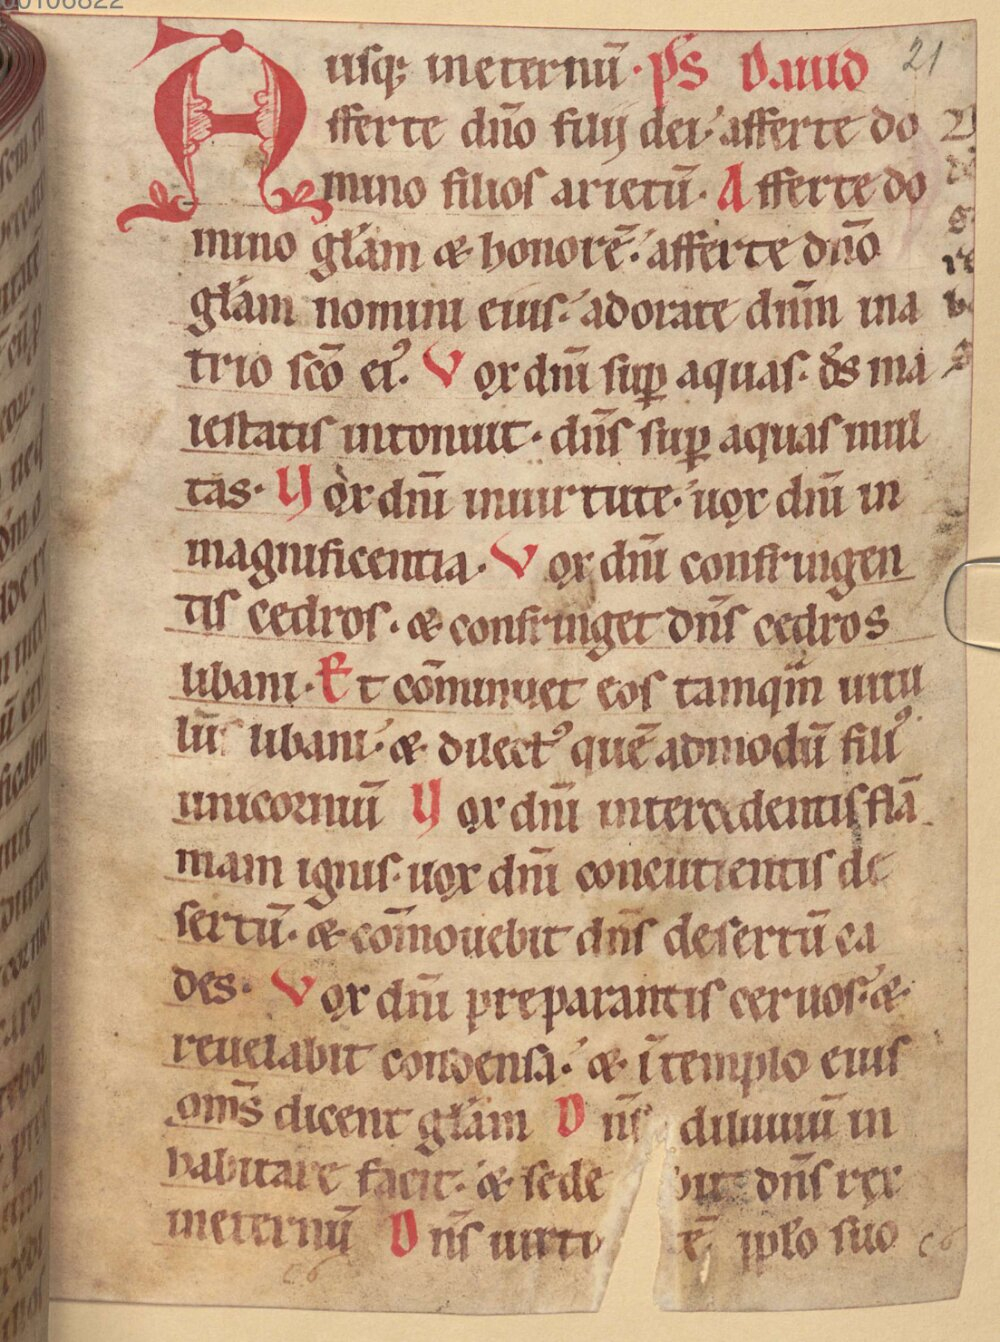 00106822
21
usq; in eternū · ps̄ Dauid
Afferte dño filij dei · afferte do
mino filios arietū · Afferte do
mino glām & honorē · afferte dño
glām nomini eius · adorate dn̄m in a
trio sc̄o eiꝰ · Vox dn̄i suꝑ aquas · ds̄ ma
iestatis intonuit · dn̄s suꝑ aquas mul
tas · Vox dn̄i in uirtute · uox dn̄i in
magnificentia · Vox dn̄i confringen
tis cedros · & confringet dn̄s cedros
libani · Et cōminuet eos tamq̄m uitu
lū libani · & dilectꝰ quē admodū filiꝰ
unicorniū Vox dn̄i intercedentis flā
mam ignis · uox dn̄i concutientis de
sertū · & cōmouebit dn̄s desertū ca
des · Vox dn̄i preparantis ceruos · &
reuelabit condensa · & ī templo eius
om̄s dicent glām Dn̄s diluuiū in
habitare facit · & sede bit dn̄s rex
in eternū Dn̄s uirtu tē pplo suo